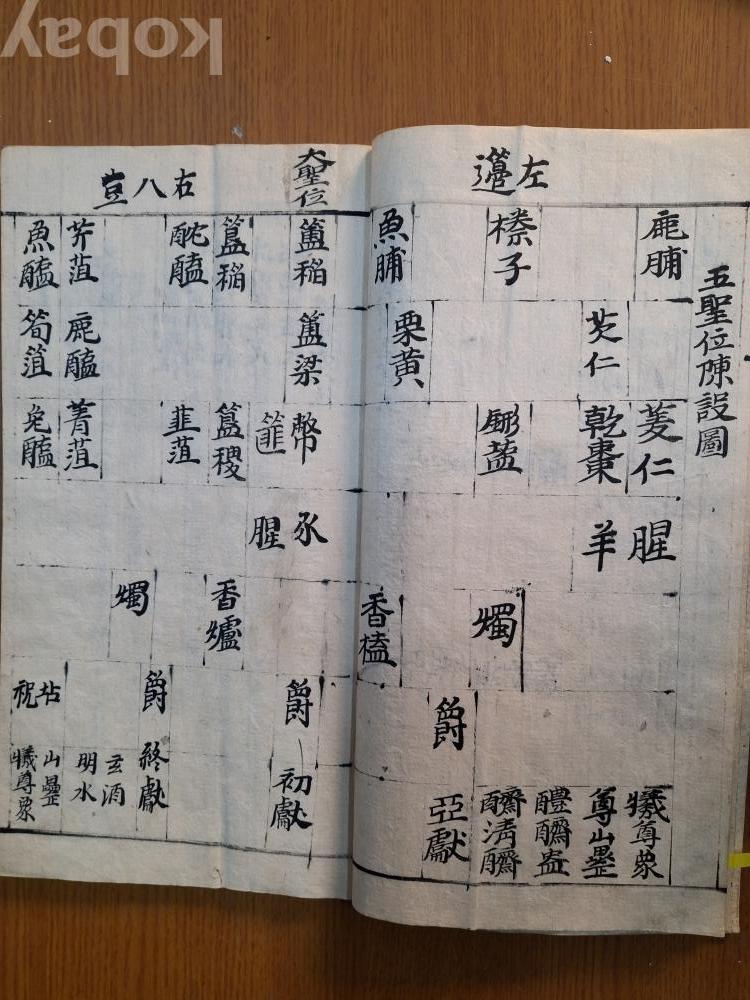 kobay
左籩
五聖位陳設圖
鹿脯
菱仁
腥
犧尊象
芡仁
乾棗
羊
尊山罍
醴
盎
榛子
燭
清
爵
亞獻
栗黃
魚脯
香榼
大聖位
右八豆
簠稻
簠梁
幣
篚
豕
腥
爵
初獻
簋稻
簋稷
香爐
酏醢
韭菹
燭
爵
終獻
玄酒
明水
芹菹
鹿醢
菁菹
魚醢
筍菹
兎醢
坫
祝
山罍
犧尊象